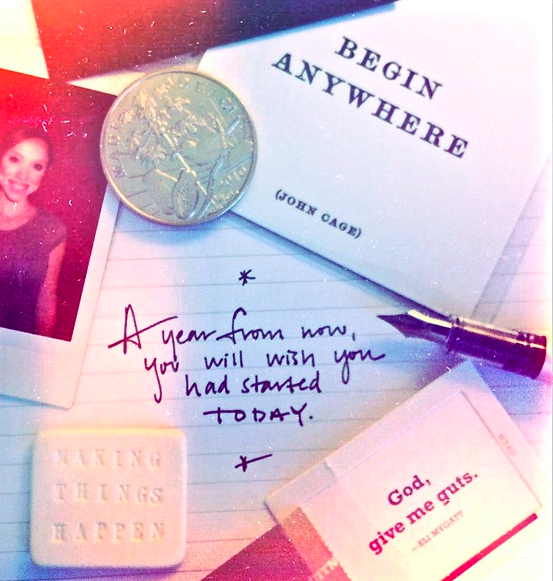 BEGIN
ANYWHERE
(JOHN CAGE)
A year from now,
you will wish you
had started
TODAY.
MAKING
THINGS
HAPPEN
God,
give me guts.
—ELI MYGATT